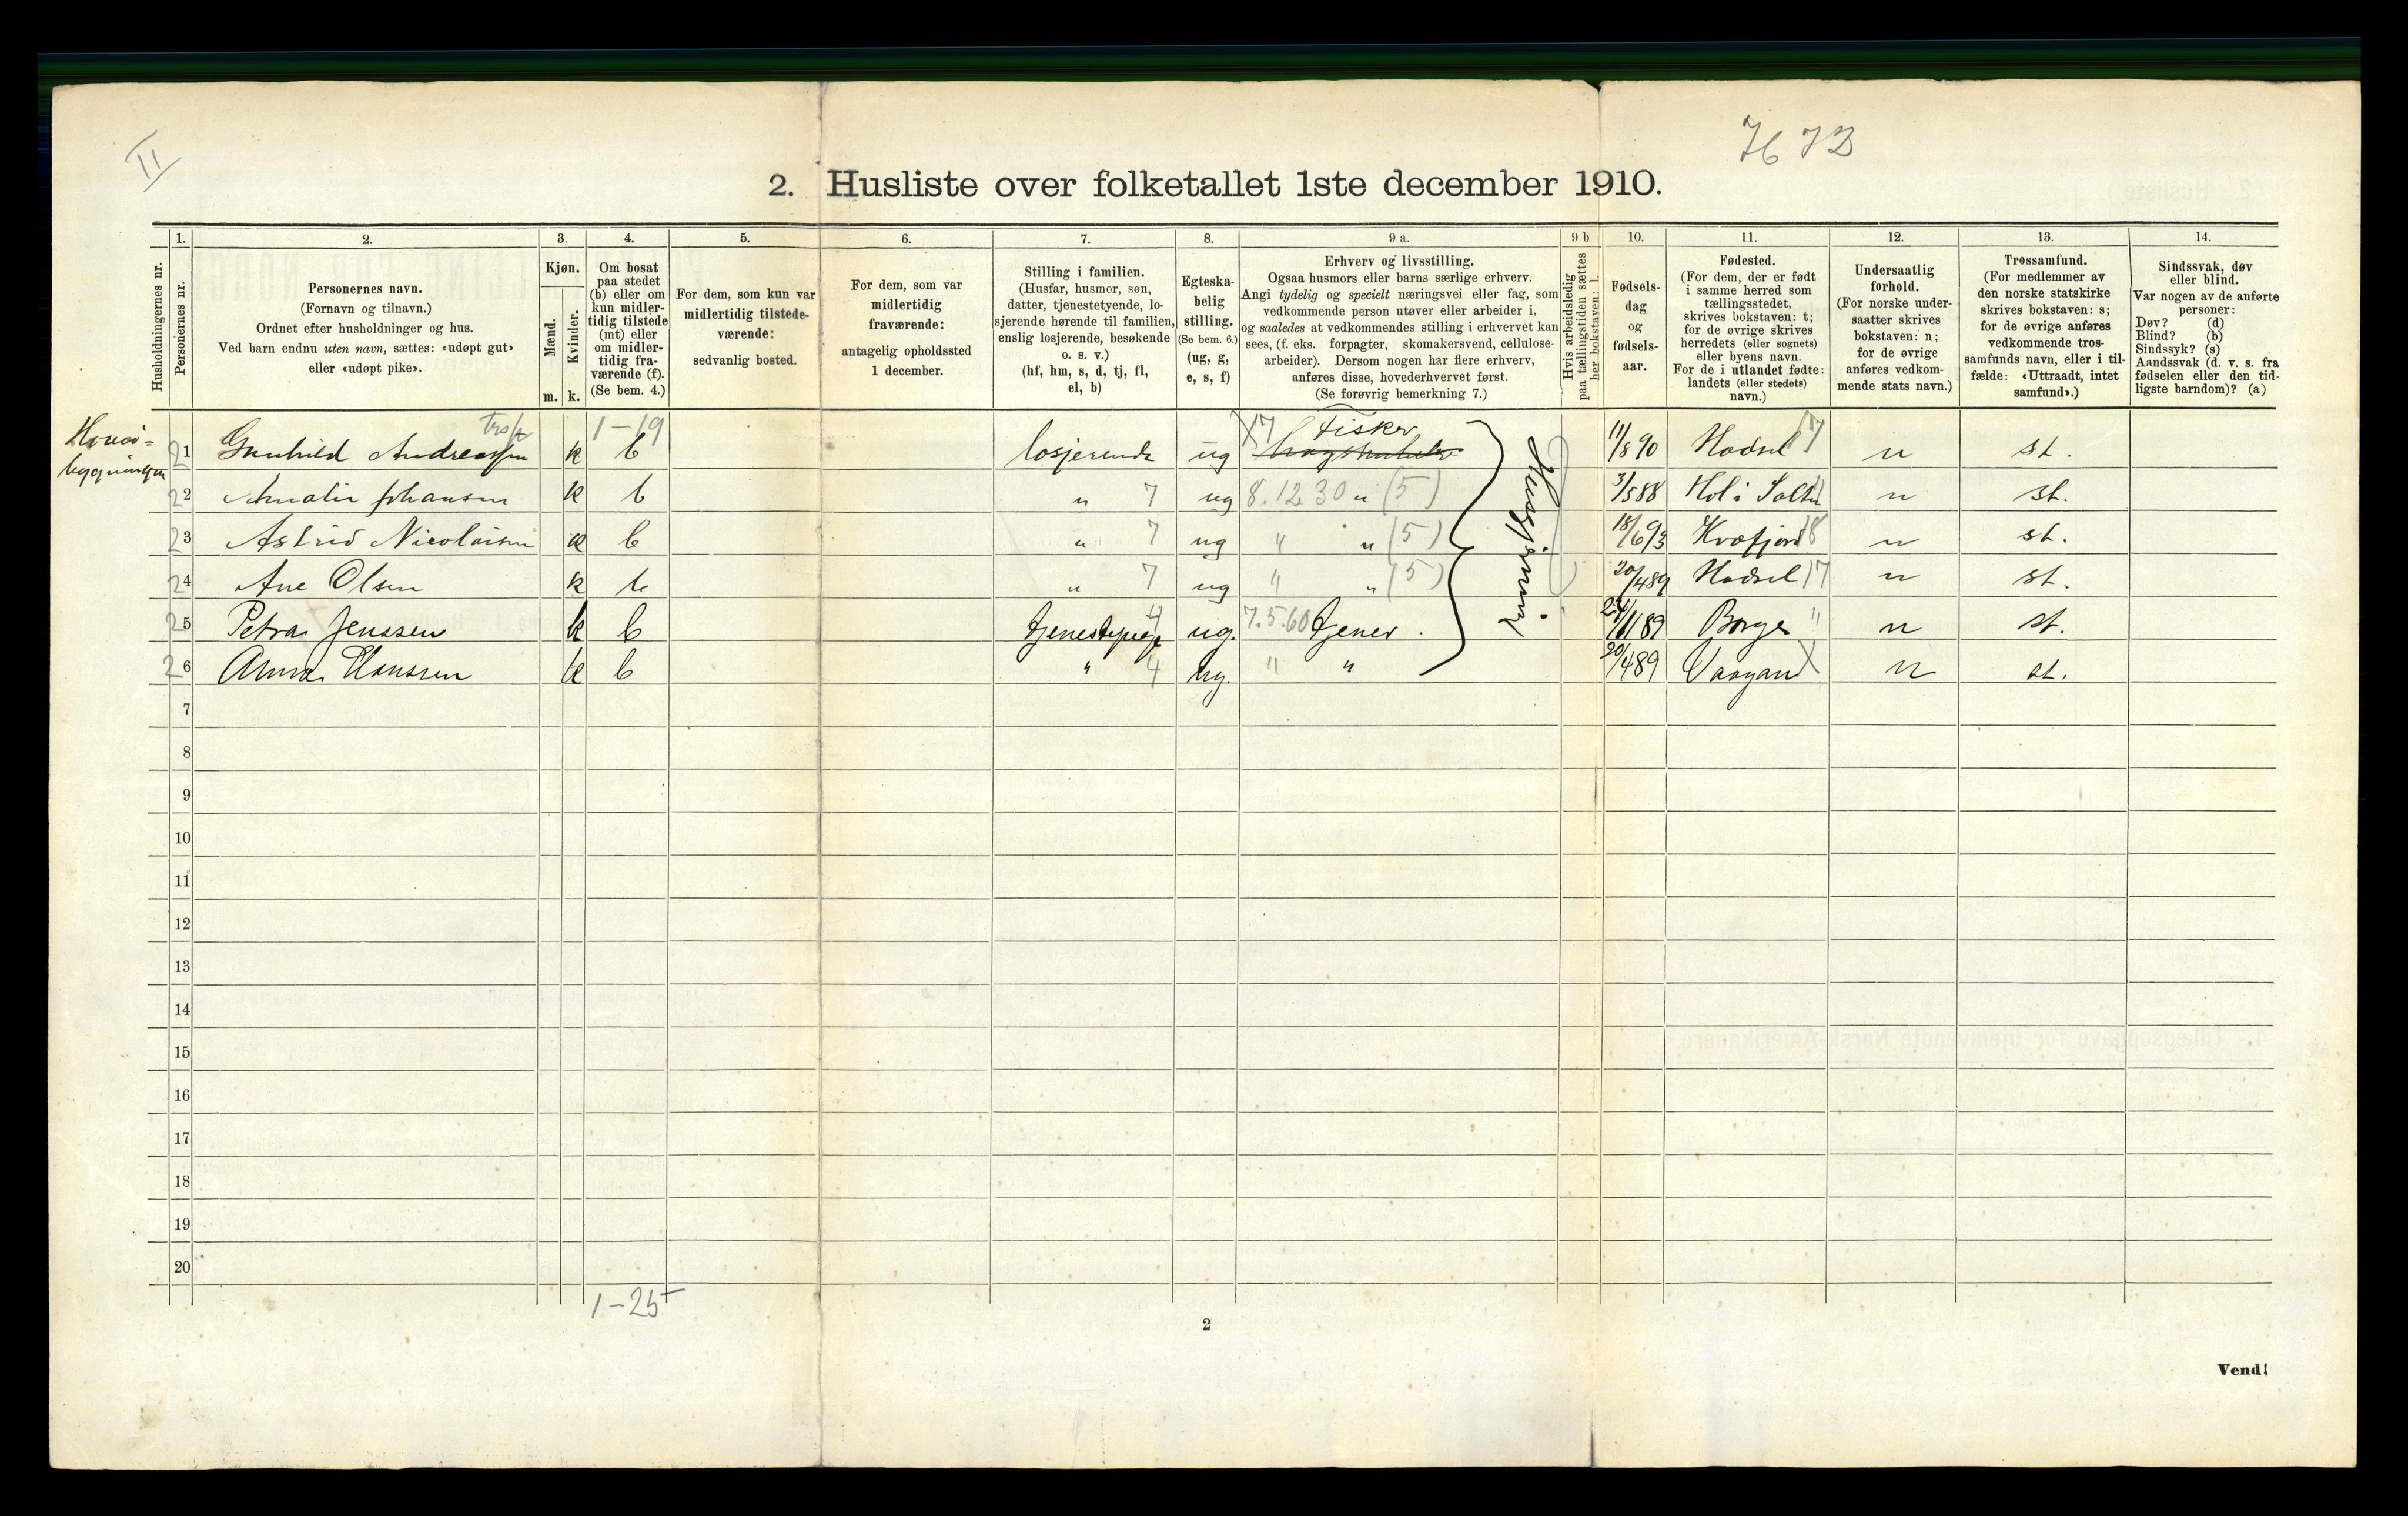 II
7672
2. Husliste over folketallet 1ste december 1910.
Husholdningernes nr.
1. Personernes nr.
2. Personernes navn.
(Fornavn og tilnavn.)
Ordnet efter husholdninger og hus.
Ved barn endnu uten navn, sættes: «udøpt gut»
eller «udøpt pike».
3. Kjøn.
Mænd. Kvinder.
m. k.
4. Om bosat
paa stedet
(b) eller om
kun midler-
tidig tilstede
(mt) eller
om midler-
tidig fra-
værende (f).
(Se bem. 4.)
5. For dem, som kun var
midlertidig tilstede-
værende:
sedvanlig bosted.
6. For dem, som var
midlertidig
fraværende:
antagelig opholdssted
1 december.
7. Stilling i familien.
(Husfar, husmor, søn,
datter, tjenestetyende, lo-
sjerende hørende til familien,
enslig losjerende, besøkende
o. s. v.)
(hf, hm, s, d, tj, fl,
el, b)
8. Egteska-
belig
stilling.
(Se bem. 6.)
(ug, g,
e, s, f)
9 a. Erhverv og livsstilling.
Ogsaa husmors eller barns særlige erhverv.
Angi tydelig og specielt næringsvei eller fag, som
vedkommende person utøver eller arbeider i,
og saaledes at vedkommendes stilling i erhvervet kan
sees, (f. eks. forpagter, skomakersvend, cellulose-
arbeider). Dersom nogen har flere erhverv,
anføres disse, hovederhvervet først.
(Se forøvrig bemerkning 7.)
9 b Hvis arbeidsledig
paa tællingstiden sættes
her bokstaven: l.
10. Fødsels-
dag
og
fødsels-
aar.
11. Fødested.
(For dem, der er født
i samme herred som
tællingsstedet,
skrives bokstaven: t;
for de øvrige skrives
herredets (eller sognets)
eller byens navn.
For de i utlandet fødte:
landets (eller stedets)
navn.)
12. Undersaatlig
forhold.
(For norske under-
saatter skrives
bokstaven: n;
for de øvrige
anføres vedkom-
mende stats navn.)
13. Trossamfund.
(For medlemmer av
den norske statskirke
skrives bokstaven: s;
for de øvrige anføres
vedkommende tros-
samfunds navn, eller i til-
fælde: «Uttraadt, intet
samfund».)
14. Sindssvak, døv
eller blind.
Var nogen av de anførte
personer:
Døv? (d)
Blind? (b)
Sindssyk? (s)
Aandssvak (d. v. s. fra
fødselen eller den tid-
ligste barndom)? (a)
1-19
Fisker
21 Gunhild Andreassen k b losjerende ug 11/8 90 Hadsel 17 n st.
22 Amalie Johansen k b " 7 ug 8.12.30 " (5) 3/5 88 Hol i n st.
23 Astrid Nicolaisen k b " 7 ug " " (5) 18/6 93 Kvæfjord 18 n st.
24 Ane Olsen k b " 7 ug " " (5) 20/4 89 Hadsel 17 n st.
25 Petra Jenssen k b tjenestepige 4 ug. 7.5.60 tjener. 24/11 89 Borge " n st.
26 Anna Hanssen k b " 4 ug. " " 20/4 89 Vaagan X n st.
Husgjerning
7
8
9
10
11
12
13
14
15
16
17
18
19
20
1-25
2
Vend!